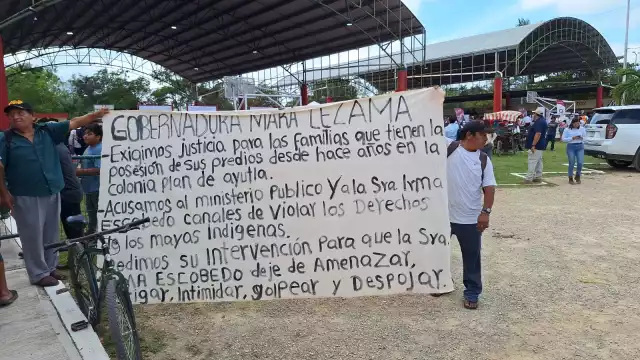 GOBERNADORA MARA LEZAMA
-Exigimos justicia para las familias que tienen la
posesión de sus predios desde hace años en la
colonia plan de ayutla.
-Acusamos al ministerio Publico Y a la Sra Irma
ESCOBEDO canales de Violar los Derechos
de los mayas Indigenas.
pedimos su Intervención Para que la Sra
ESCOBEDO deje de Amenazar,
Intimidar, golpear y Despojar.